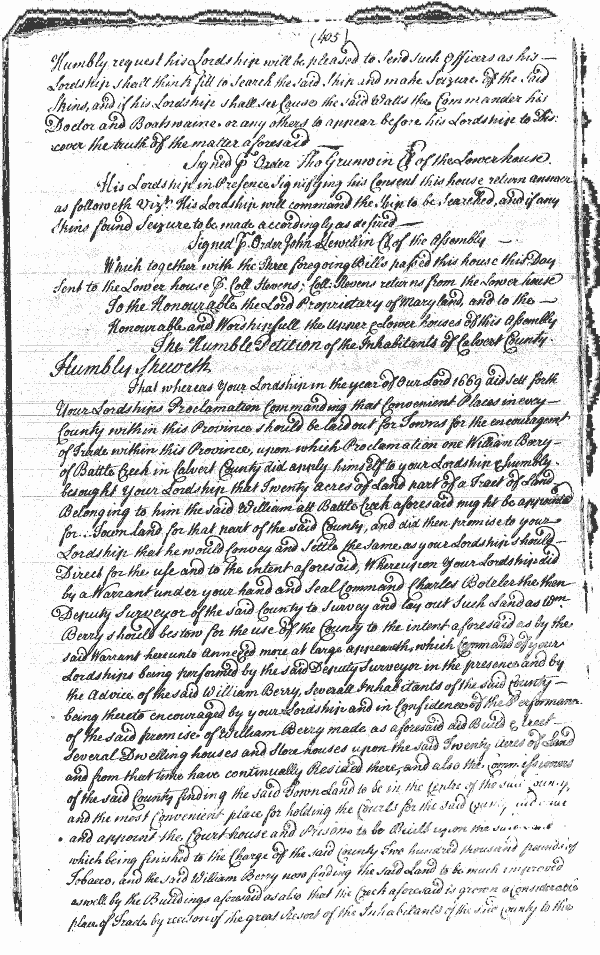 (405)
Humbly request his Lordship will be pleased to Send such Officers as his
Lordship shall think fitt to search the said Ship and make Seizure of the Said
Skins, and if his Lordship shall see Cause the said Watts the Commander his
Doctor and Boatswaine or any others to appear before his Lordship to Dis:
cover the truth of the matter aforesaid
Signed p Order Tho Grunwin Cl of the Lower house.
His Lordship in Presence Signifying his Consent this house return answer
as followeth Vizt. His Lordship will command the Ship to be Searched, and if any
Skins found Seizure to be made accordingly as desired
Signed p Order John Llewelin Cl. of the Assembly
Which together with the Three foregoing Bills passed this house this Day
Sent to the Lower house p Coll Stevens; Coll: Stevens returns from the Lower house
To the Honourable the Lord Proprietary of Maryland and to the
Honourable and Worshipfull the Upper & Lower houses of this Assembly
The Humble Petition of the Inhabitants of Calvert County.
Humbly Sheweth
That whereas Your Lordship in the year of Our Lord 1669 did sett forth
Your Lordships Proclamation Commanding that Convenient Places in every
County within this Province should be laid out for Towns for the encouragemt
of Trade within this Province, upon which Proclamation one William Berry
of Battle Creek in Calvert County did apply himself to your Lordship & humbly
besought Your Lordship that Twenty acres of Land part of a Tract of Land
Belonging to him the said William att Battle Creek aforesaid might be appointed
for Town land for that part of the said County, and did then promise to your
Lordship that he would Convey and Settle the same as your Lordship should
Direct for the use and to the intent aforesaid, Whereupon Your Lordship did
by a Warrant under your hand and Seal Command Charles Boteler the then
Deputy Surveyor of the said County to Survey and lay out Such Land as Wm
Berry should bestow for the use of the County to the intent aforesaid as by the
said Warrant hereunto Annexed more at large appeareth, which Command of your
Lordships being performed by the said Deputy Surveyor in the presence and by
the Advice of the said William Berry, Severall Inhabitants of the said County
being thereto encouraged by your Lordship and in Confidence of the Performance
of the said promise of William Berry made as aforesaid did Build & erect
Several Dwelling houses and Store houses upon the said Twenty acres of Land
and from that time have continually Resided there, and also the Commissioners
of the said County finding the said Town Land to be in the Centre of the said County,
and the most Convenient place for holding the Courts for the said County
and appoint the Court house and Prisons to be Built upon the said Land
which being finished to the Charge of the said County Two hundred thousand pounds of
Tobacco, and the said William Berry now finding the said Land to be much improved
as well by the Buildings aforesaid as also that the Creek aforesaid is grown a Considerable
place of Trade by reason of the great Resort of the Inhabitants of the said County to the